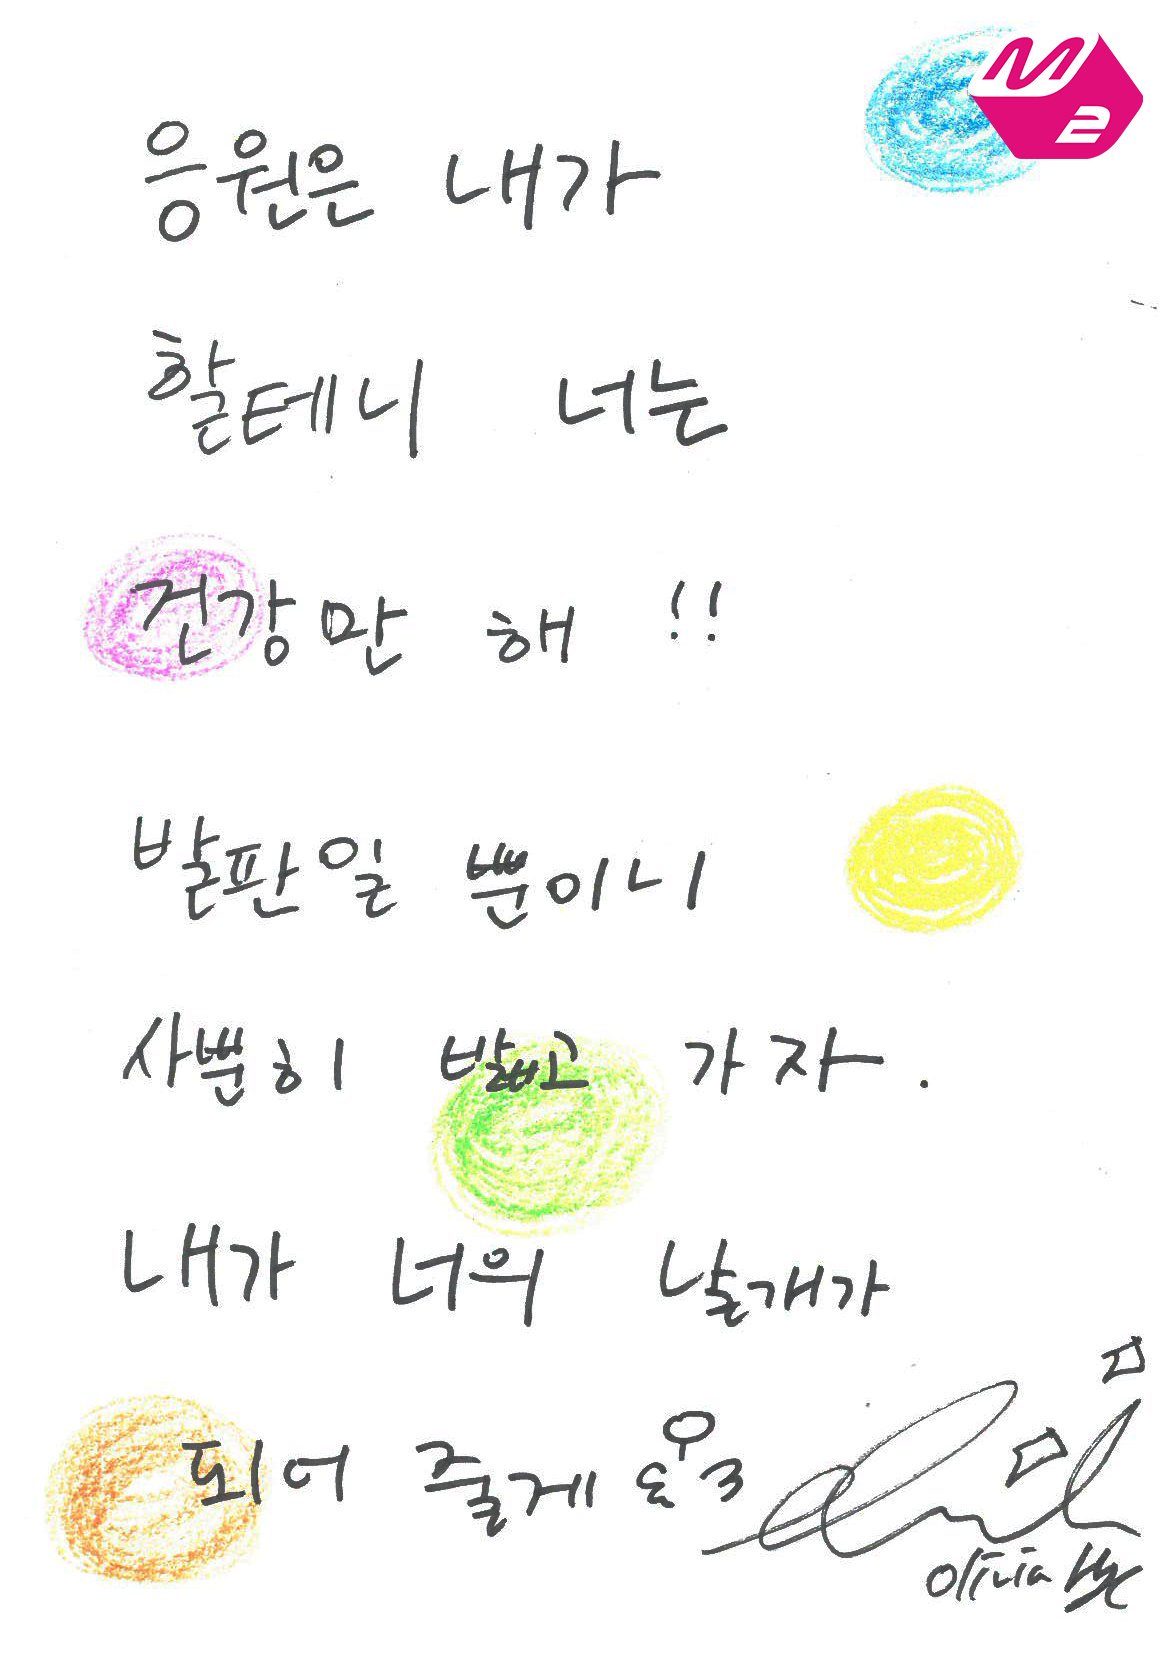 M2
응원은 내가
할테니 너는
건강만 해 !!
발판일 뿐이니
사뿐히 밟고 가자.
내가 너의 날개가
되어 줄게
olivia hye